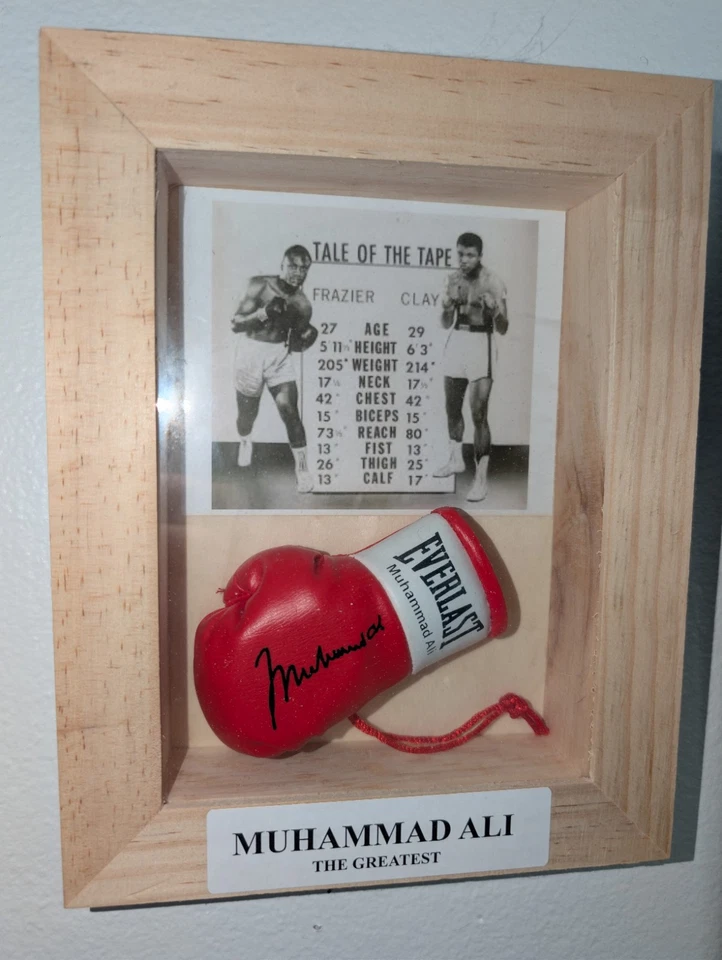 TALE OF THE TAPE
FRAZIER CLAY
27 AGE 29
5'11½" HEIGHT 6'3"
205" WEIGHT 214"
17½ NECK 17½"
42" CHEST 42"
15" BICEPS 15"
73½" REACH 80"
13" FIST 13"
26" THIGH 25"
13" CALF 17"
EVERLAST
Muhammad Ali
Muhammad Ali
MUHAMMAD ALI
THE GREATEST